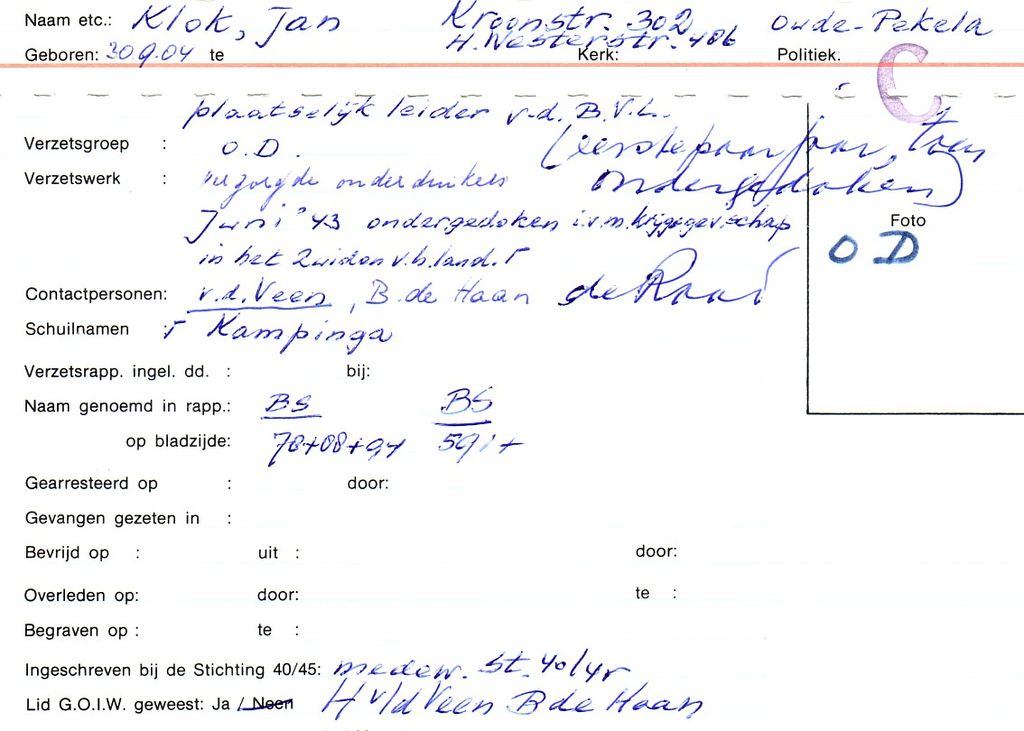 Naam etc.: Klok, Jan Kroonstr. 302 Oude-Pekela
H. Westerstr. 486
Geboren: 30.9.04 te Kerk: Politiek.
C
plaatselijk leider v.d. B.V.L.
Verzetsgroep : O.D. (eerste paar jaar, toen
Verzetswerk : verzorgde onderduikers ondergedoken)
Juni '43 ondergedoken i.v.m. krijgsgev.schap
in het Zuiden v.h. land.
Foto
O D
Contactpersonen: v.d. Veen, B. de Haan de Raad
Schuilnamen : Kampinga
Verzetsrapp. ingel. dd. : bij:
Naam genoemd in rapp.: BS BS
op bladzijde: 78+88+94 591+
Gearresteerd op : door:
Gevangen gezeten in :
Bevrijd op : uit : door:
Overleden op: door: te :
Begraven op : te :
Ingeschreven bij de Stichting 40/45: medew. St. 40/45
Lid G.O.I.W. geweest: Ja / Neen H v/d Veen B de Haan